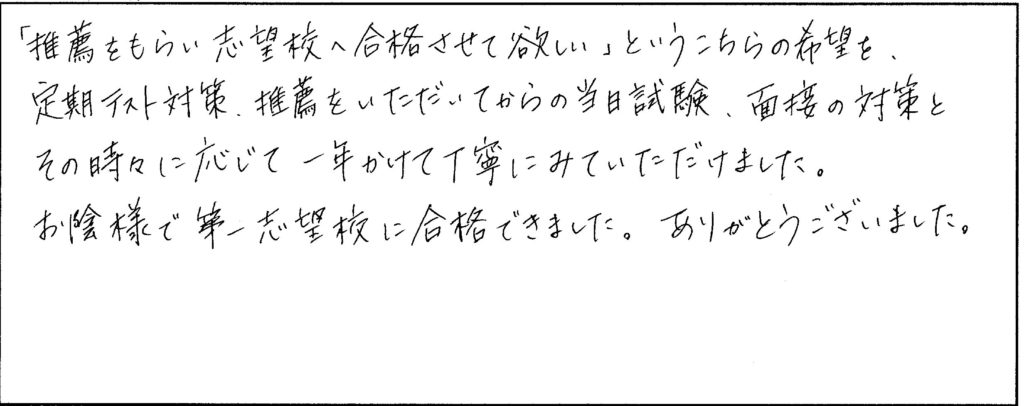 「推薦をもらい志望校へ合格させて欲しい」というこちらの希望を、
定期テスト対策、推薦をいただいてからの当日試験、面接の対策と
その時々に応じて一年かけて丁寧にみていただけました。
お陰様で第一志望校に合格できました。ありがとうございました。